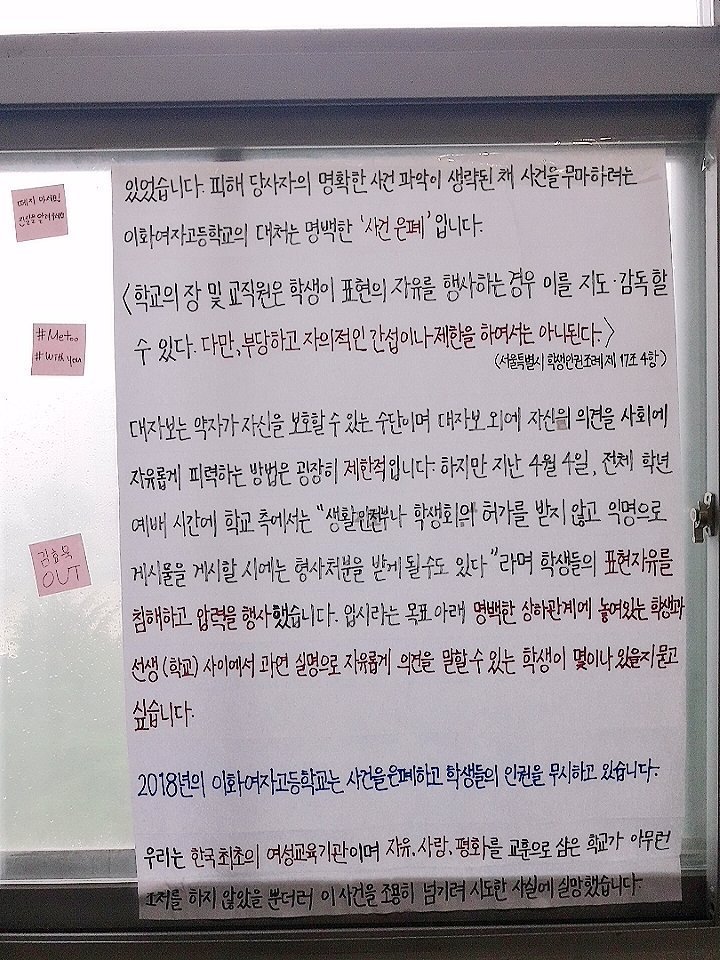 떼지 마세요!
#Metoo
#With you
김효목
OUT
있었습니다. 피해 당사자의 명확한 사건 파악이 생략된 채 사건을 무마하려는
이화여자고등학교의 대처는 명백한 '사건 은폐' 입니다.
<학교의 장 및 교직원은 학생이 표현의 자유를 행사하는 경우 이를 지도·감독할
수 있다. 다만, 부당하고 자의적인 간섭이나 제한을 하여서는 아니된다.>
(서울특별시 학생인권조례 제 17조 4항)
대자보는 약자가 자신을 보호할 수 있는 수단이며 대자보 외에 자신의 의견을 사회에
자유롭게 피력하는 방법은 굉장히 제한적입니다. 하지만 지난 4월 4일, 전체 학년
예배 시간에 학교 측에서는 "생활안전부나 학생회의 허가를 받지 않고 익명으로
게시물을 게시할 시에는 형사처분을 받게 될수도 있다"라며 학생들의 표현자유를
침해하고 압력을 행사했습니다. 입시라는 목표 아래 명백한 상하관계에 놓여있는 학생과
선생(학교) 사이에서 과연 실명으로 자유롭게 의견을 말할 수 있는 학생이 몇이나 있을지 묻고
싶습니다.
2018년의 이화여자고등학교는 사건을 은폐하고 학생들의 인권을 무시하고 있습니다.
우리는 한국 최초의 여성교육기관이며 자유, 사랑, 평화를 교훈으로 삼은 학교가 아무런
조처를 하지 않았을 뿐더러 이 사건을 조용히 넘기려 시도한 사실에 실망했습니다.